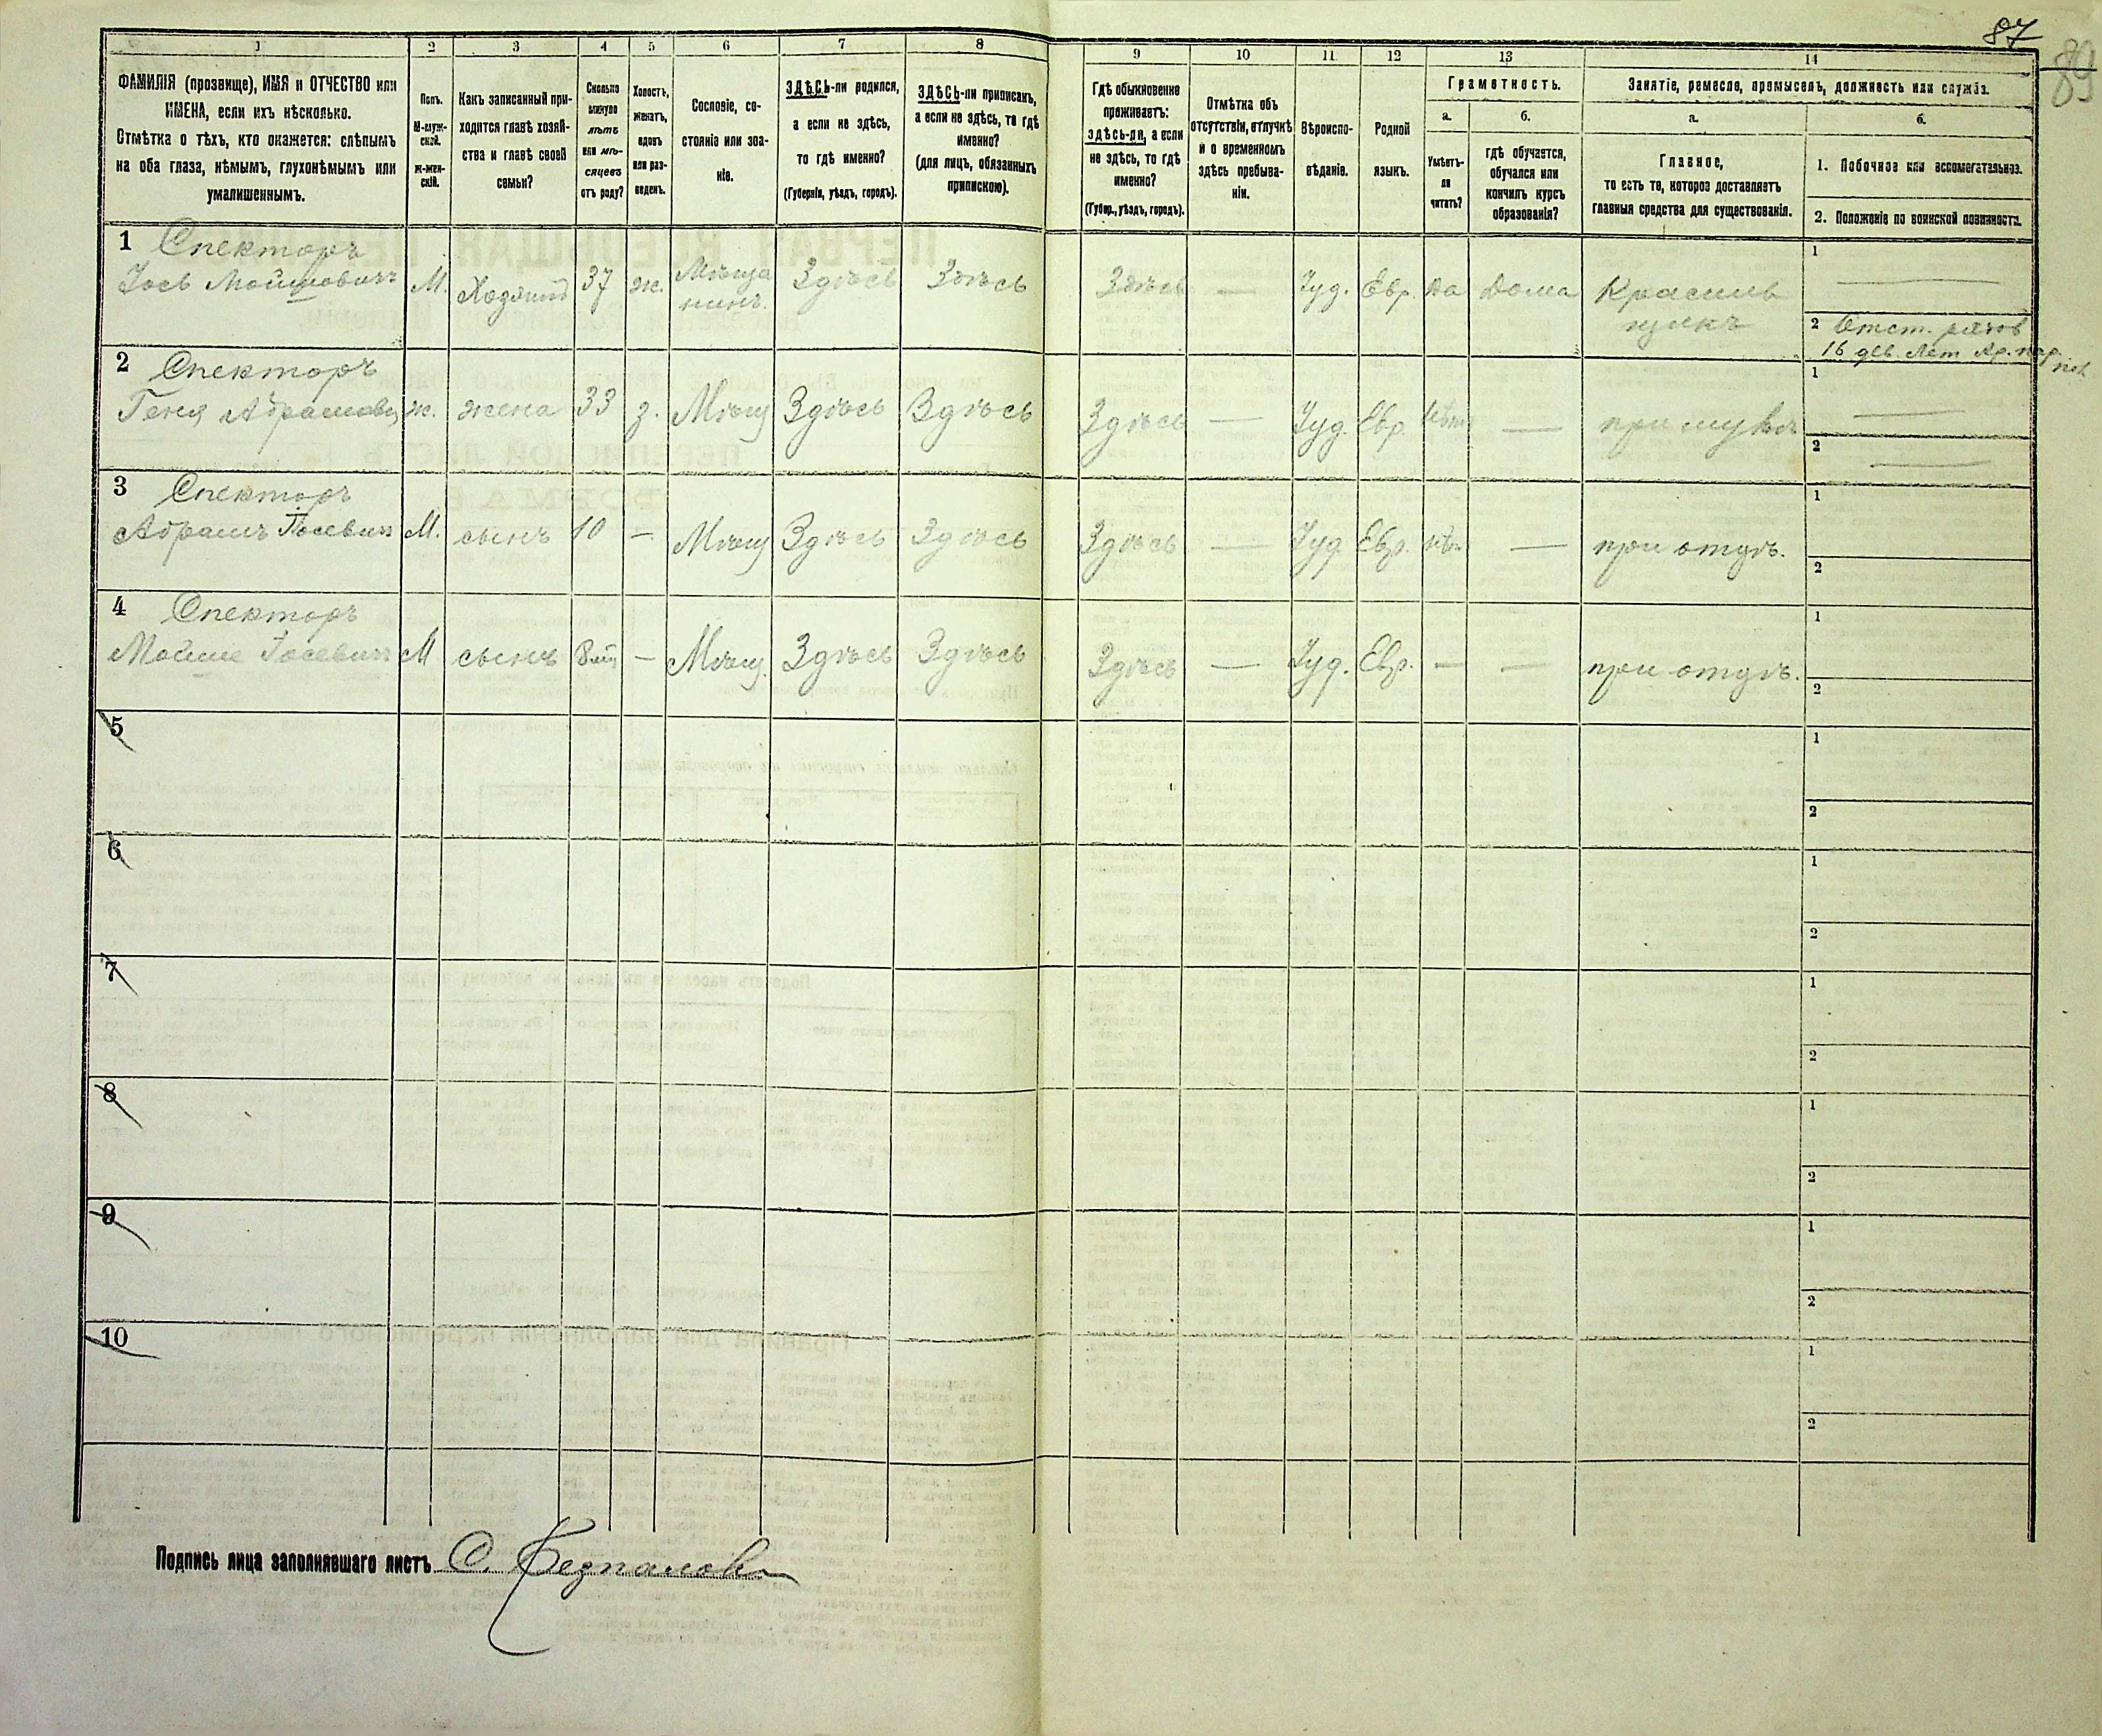 87
89
1 2 3 4 5 6 7 8 9 10 11 12 13 14
ФАМИЛІЯ (прозвище), ИМЯ и ОТЧЕСТВО или
ИМЕНА, если ихъ нѣсколько.
Отмѣтка о тѣхъ, кто окажется: слѣпымъ
на оба глаза, нѣмымъ, глухонѣмымъ или
умалишеннымъ.
Полъ.
М-муж-
ской.
Ж-жен-
скій.
Какъ записанный при-
ходится главѣ хозяй-
ства и главѣ своей
семьи?
Сколько
минуло
лѣтъ
или мѣ-
сяцевъ
отъ роду?
Холостъ,
женатъ,
вдовъ
или раз-
веденъ.
Сословіе, со-
стояніе или зва-
ніе.
ЗДѢСЬ-ли родился,
а если не здѣсь,
то гдѣ именно?
(Губернія, уѣздъ, городъ).
ЗДѢСЬ-ли приписанъ,
а если не здѣсь, то гдѣ
именно?
(для лицъ, обязанныхъ
припискою).
Гдѣ обыкновенно
проживаетъ:
здѣсь-ли, а если
не здѣсь, то гдѣ
именно?
(Губер., уѣздъ, городъ).
Отмѣтка объ
отсутствіи, отлучкѣ
и о временномъ
здѣсь пребыва-
ніи.
Вѣроиспо-
вѣданіе.
Родной
языкъ.
Грамотность.
а.
Умѣетъ-
ли
читать?
б.
гдѣ обучается,
обучался или
кончилъ курсъ
образованія?
Занятіе, ремесло, промыселъ, должность или служба.
а.
Главное,
то есть то, которое доставляетъ
главныя средства для существованія.
б.
1. Побочное или вспомогательное.
2. Положеніе по воинской повинности.
1 Спекторъ
Іось Мошковичъ М. Хозяинъ 37 ж. Мѣща
нинъ. Здѣсь Здѣсь Здѣсь — Іуд. Евр. Да Дома Красиль
щикъ
1 —
2 Отст. рядов
16
2 Спекторъ
Геня Абрамовн ж. жена 33 з. Мѣщ Здѣсь Здѣсь Здѣсь — Іуд. Евр. нѣтъ — при мужѣ
1 —
2 —
3 Спекторъ
Абрамъ Іосевичъ М. сынъ 10 — Мѣщ Здѣсь Здѣсь Здѣсь — Іуд. Евр. нѣтъ — при отцѣ.
1
2
4 Спекторъ
Мойше Іосевичъ М сынъ 8 мѣц — Мѣщ. Здѣсь Здѣсь Здѣсь — Іуд. Евр. — — при отцѣ.
1
2
5
1
2
6
1
2
7
1
2
8
1
2
9
1
2
10
1
2
Подпись лица заполнявшаго листъ С.